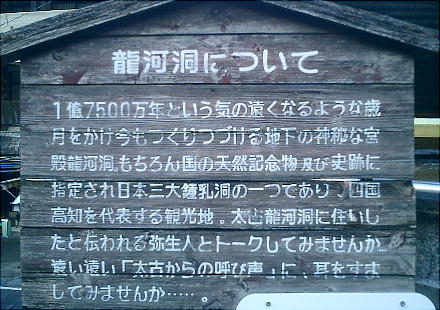 龍河洞について
1億7500万年という気の遠くなるような歳
月をかけ今もつくりつづける地下の神秘な宮
殿龍河洞、もちろん国の天然記念物及び史跡に
指定され日本三大鍾乳洞の一つであり、四国
高知を代表する観光地。太古龍河洞に住いし
たと伝われる弥生人とトークしてみませんか
遠い遠い「太古からの呼び声」に、耳をすま
してみませんか……。